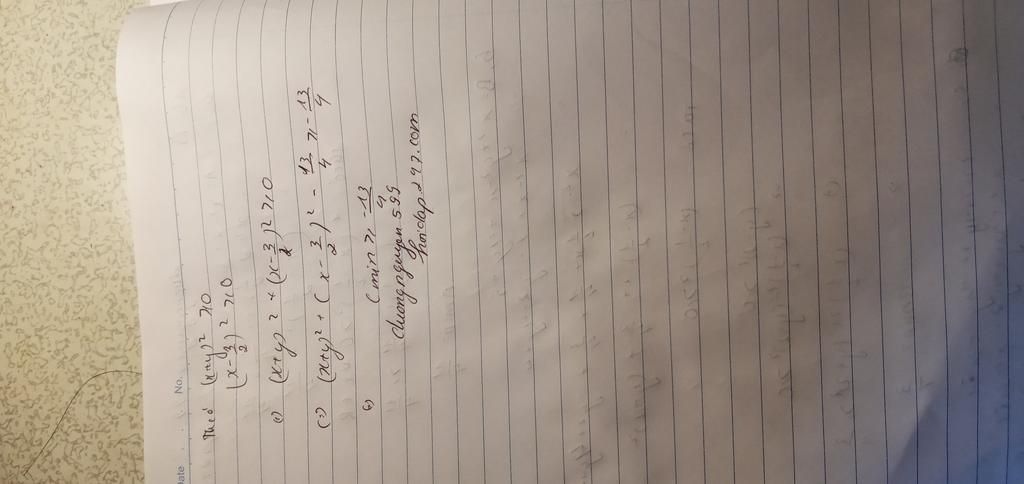 Date No.
Theo (x+y)² ≥ 0
(x-3/2)² ≥ 0
(=) (x+y)² + (x-3/2)² ≥ 0
(=) (x+y)² + (x-3/2)² - 13/4 ≥ -13/4
(=) C min ≥ -13/4
duongnguyen.599
hoidap247.com